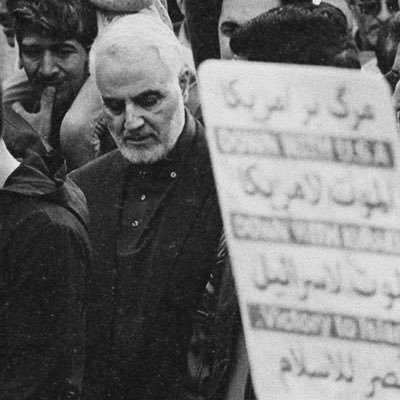 مرگ بر آمریکا
DOWN WITH U.S.A
الموت لامریکا
DOWN WITH
موت لاسرائیل
Victory to Isla
صر للاسلام